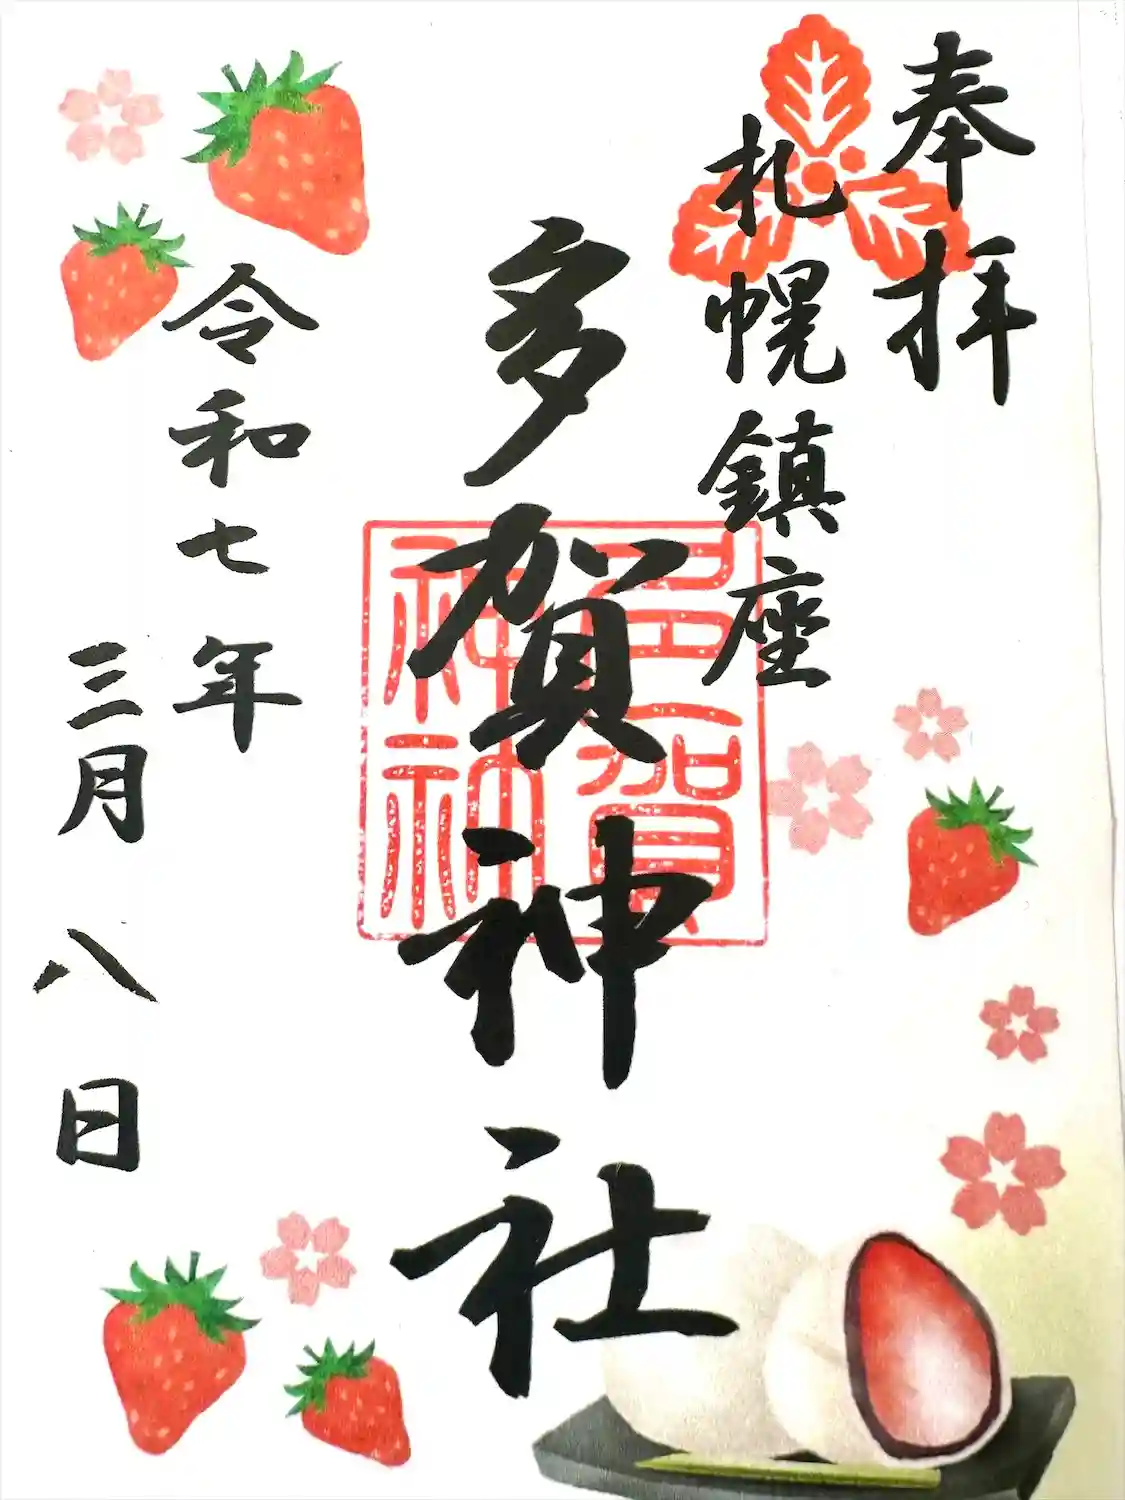 奉拝
札幌鎮座
多賀神社
多賀
神社
令和七年
三月八日